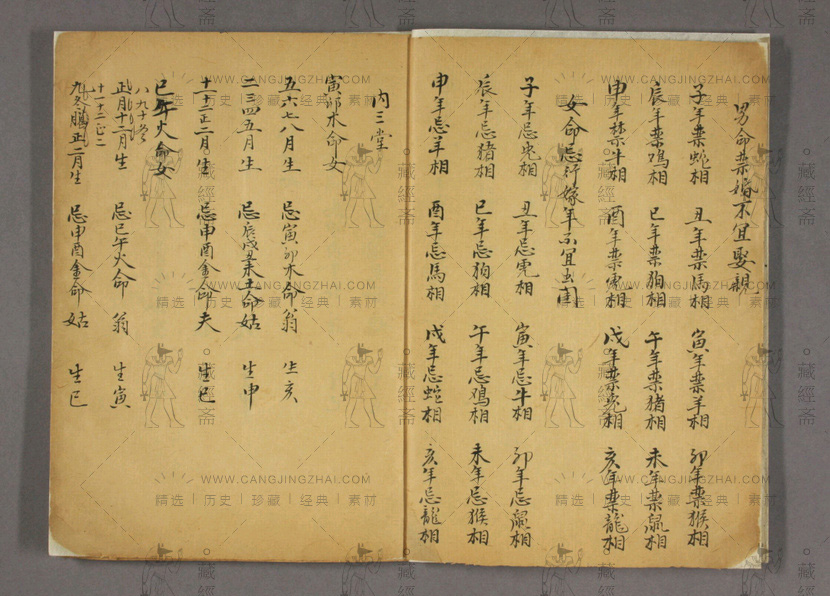 男命禁婚不宜娶親
子年禁蛇相 丑年禁馬相 寅年禁羊相 卯年禁猴相
辰年禁鸡相 巳年禁狗相 午年禁猪相 未年禁鼠相
申年禁牛相 酉年禁虎相 戌年禁兔相 亥年禁龍相
女命忌行嫁年不宜出閨
子年忌兔相 丑年忌虎相 寅年忌牛相 卯年忌鼠相
辰年忌猪相 巳年忌狗相 午年忌鸡相 未年忌猴相
申年忌羊相 酉年忌馬相 戌年忌蛇相 亥年忌龍相
内三堂
寅卯木命女
五六七八月生 忌寅卯木命翁 生亥
二三四五月生 忌辰戌丑未土命姑 生申
十一十二正二月生 忌申酉金命夫 生巳
巳午火命女
八九十
正月十二月生 忌巳午火命翁 生寅
十一十二正二
九冬臘正二月生 忌申酉金命姑 生巳
WWW.CANGJINGZHAI.COM
精选 | 历史 | 珍藏 | 经典 | 素材
藏經斋